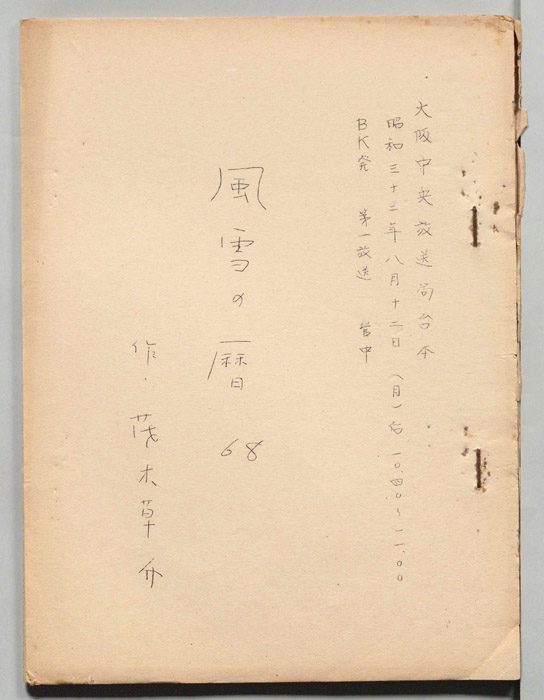 大阪中央放送局台本
昭和三十二年八月十二日（月）后 一〇.四〇～一一.〇〇
BK発 第一放送 管中
風雪の暦 68
作・茂木草介